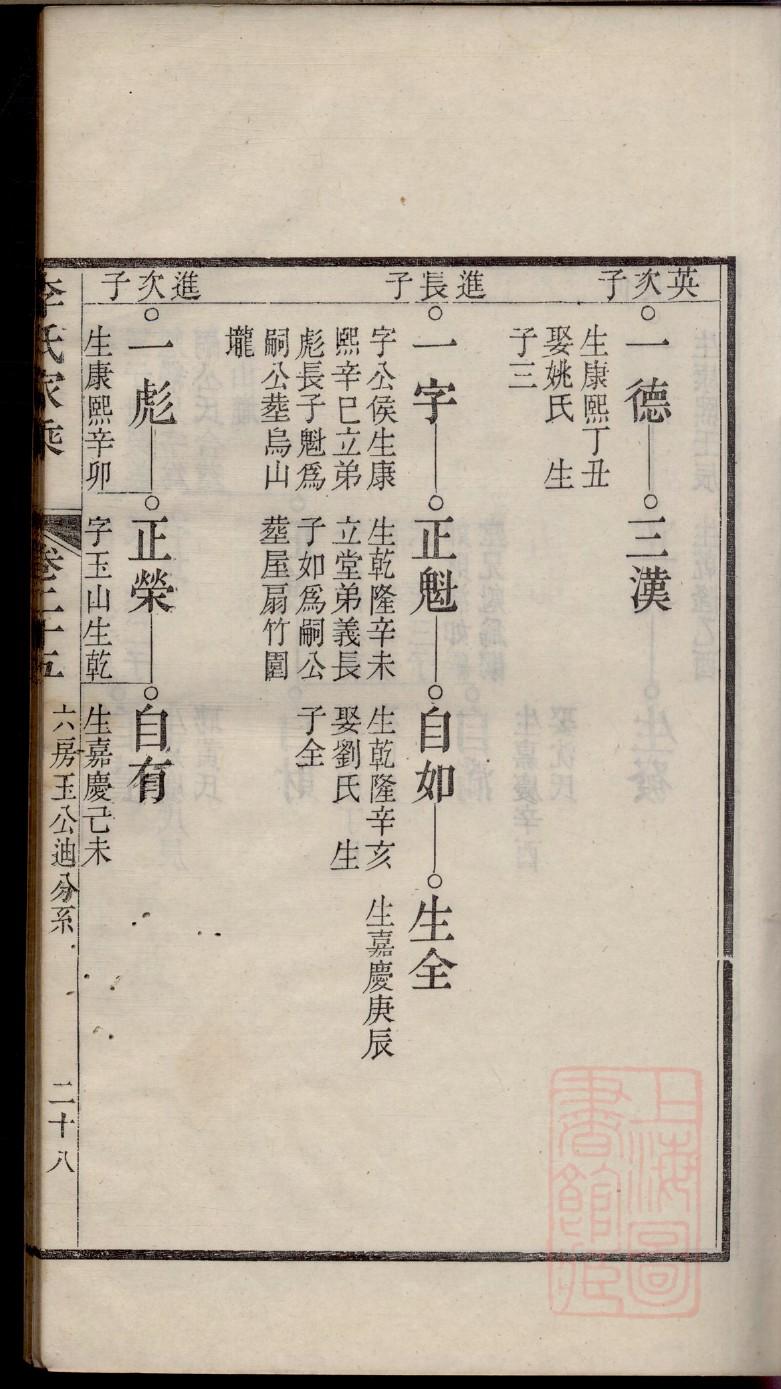 英次子
一德
生康熙丁丑
娶姚氏　生
子三
三漢
進長子
一字
字公侯生康
熙辛巳立弟
彪長子魁爲
嗣公塟烏山
壠
正魁
生乾隆辛未
立堂弟義長
子如爲嗣公
塟屋扇竹園
自如
生乾隆辛亥
娶劉氏　生
子全
生全
生嘉慶庚辰
進次子
一彪
生康熙辛卯
正榮
字玉山生乾
自有
生嘉慶己未
李氏家乘
卷二十五
六房玉公迪分系
二十八
上海圖
書館藏